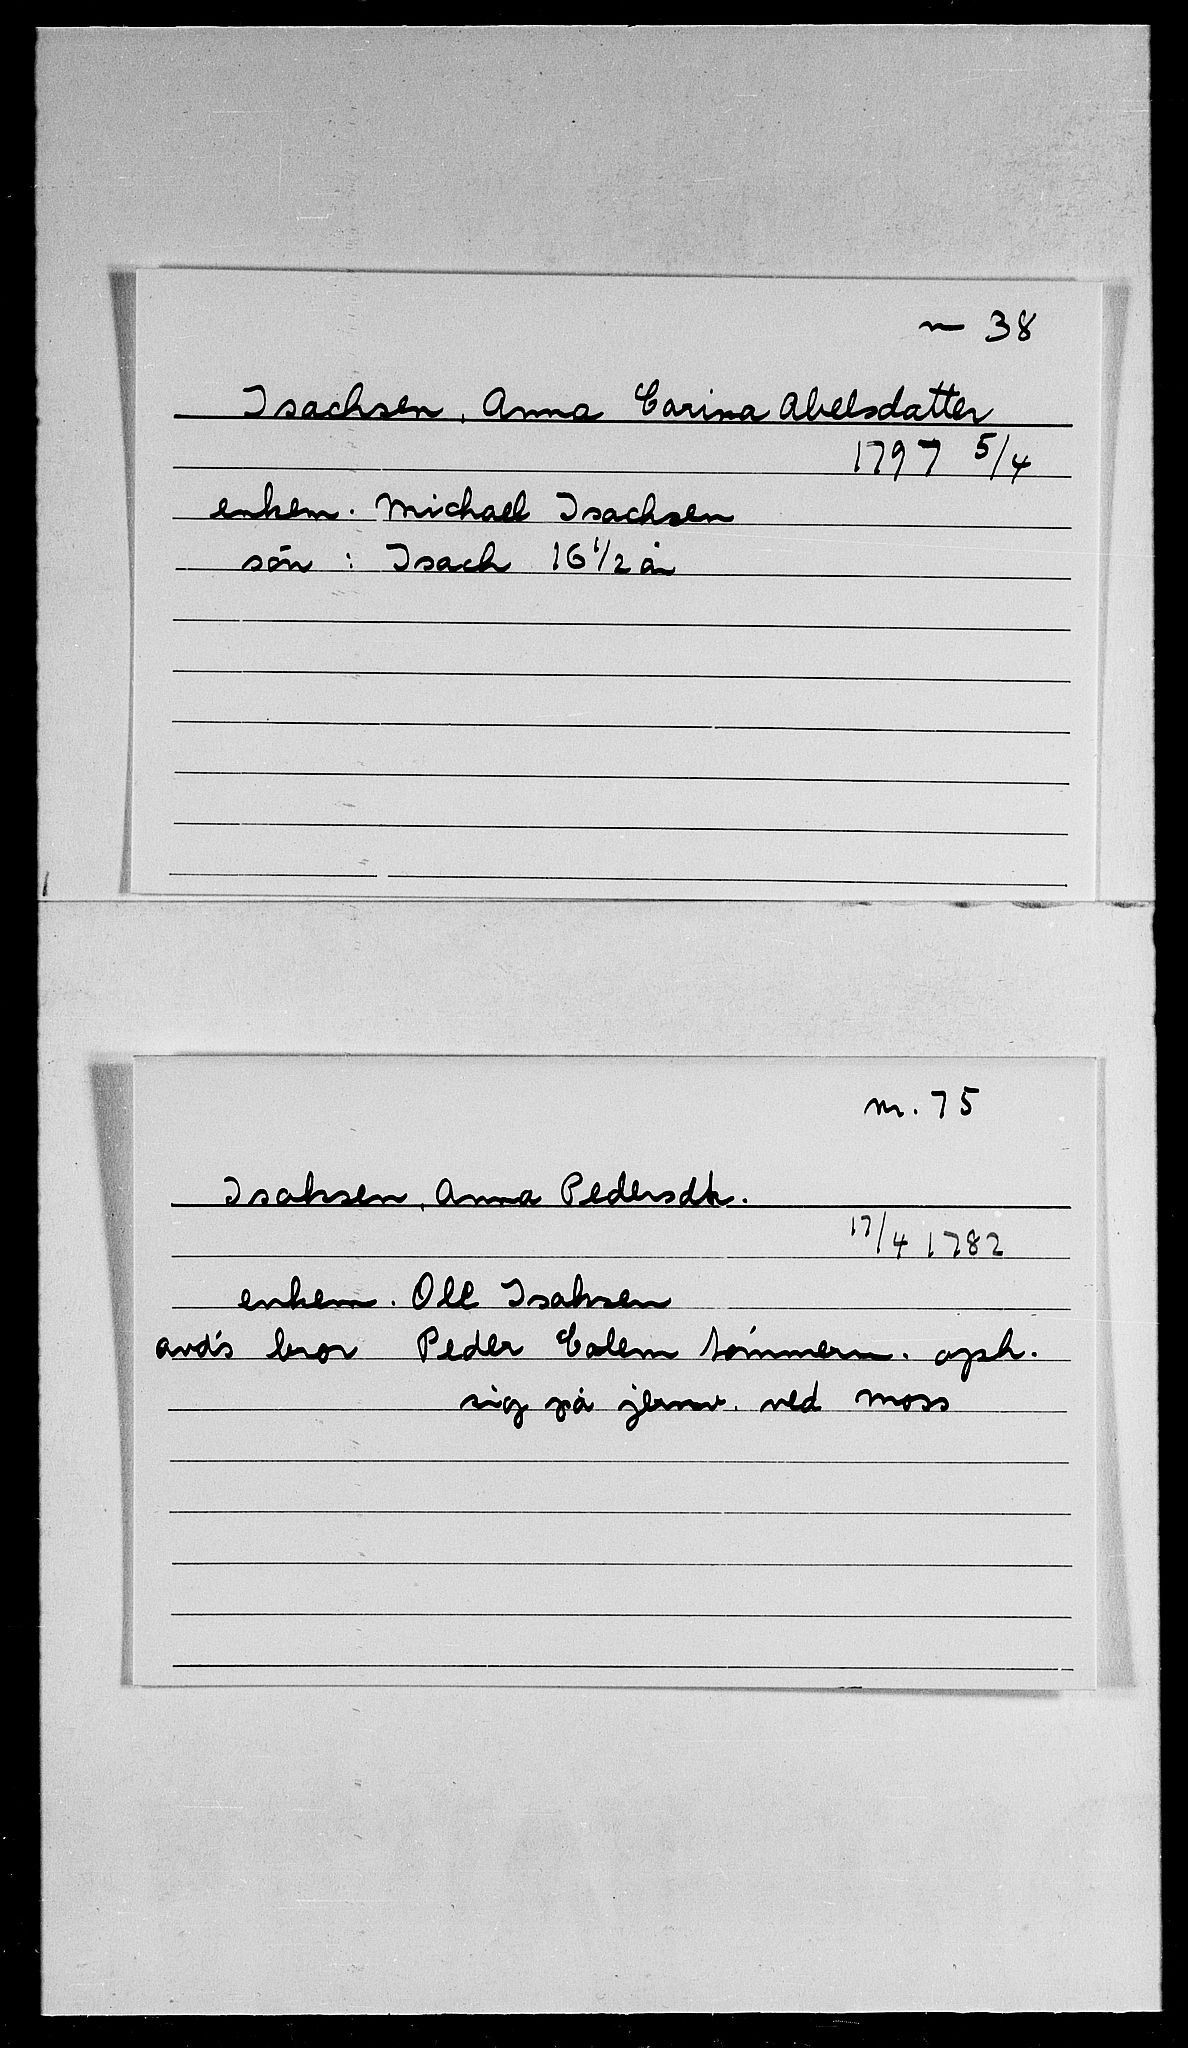 nr 38
Isachsen, Anna Carina Abelsdatter
1797 5/4
enkem. Michael Isachsen
søn : Isach 16 1/2 år
nr. 75
Isaksen, Anna Pedersdtr.
17/4 1782
enkem. Ole Isaksen
avd's bror Peder Calem tømmerm. oph.
sig på jernv. ved Moss